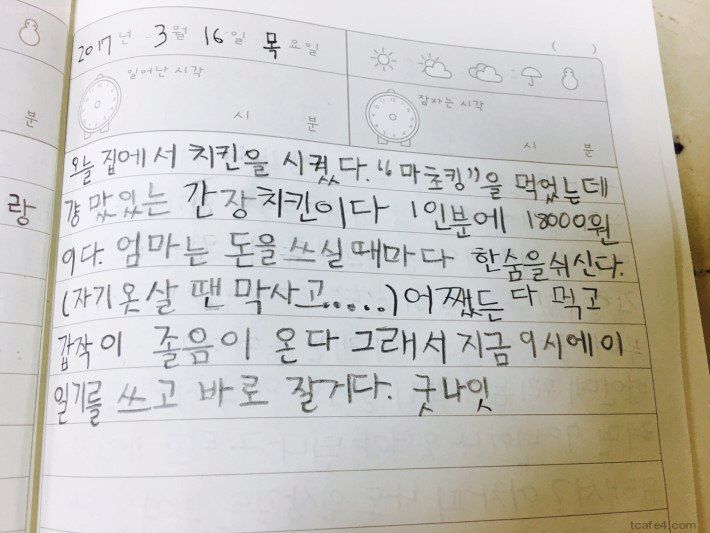 2017년 3월 16일 목요일 ( )
일어난 시각
잠자는 시각
시 분
시 분
분
랑
오늘 집에서 치킨을 시켰다. "마초킹"을 먹었는데
걍 맛있는 간장치킨이다 1인분에 18000원
이다. 엄마는 돈을 쓰실때마다 한숨을쉬신다.
(자기옷살 땐 막사고.....)어쨌든 다 먹고
갑작이 졸음이 온다 그래서 지금 9시에이
일기를 쓰고 바로 잘거다. 굿나잇
tcafe4.com